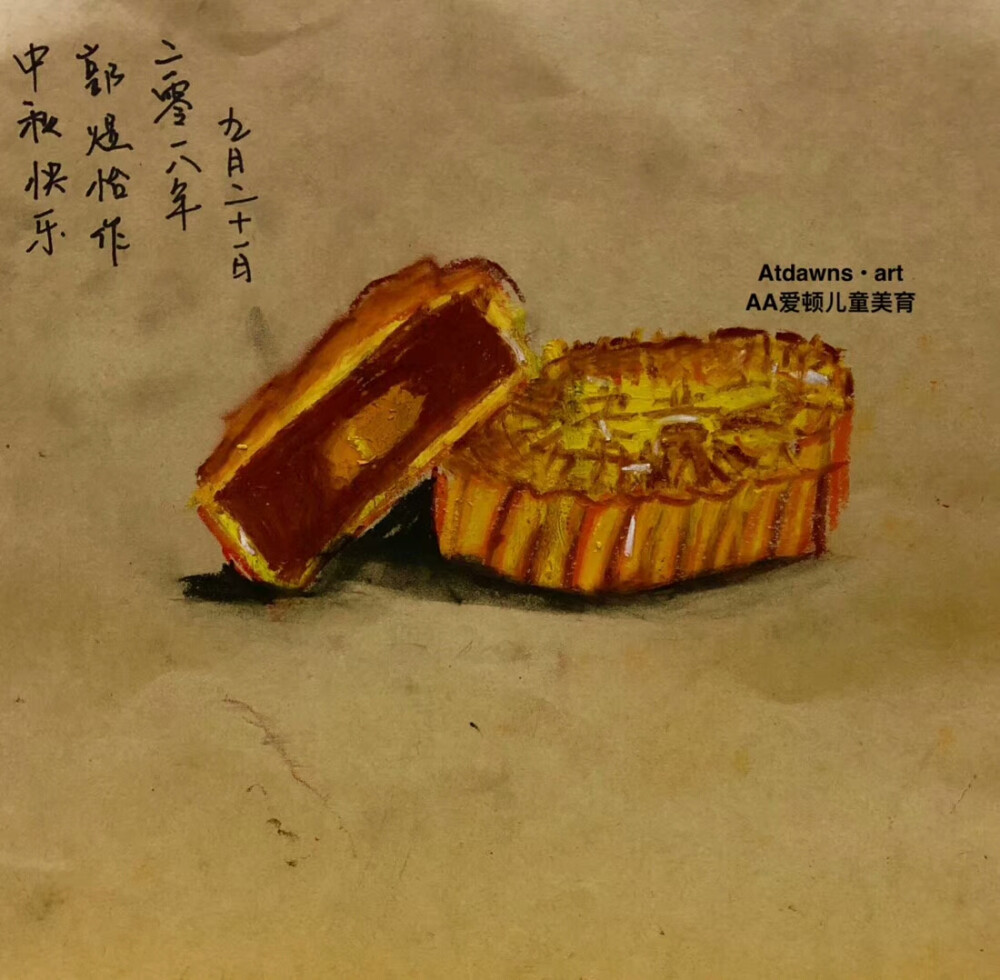 九月二十一日
二零一八年
郭煜怡作
中秋快乐
Atdawns·art
AA爱顿儿童美育